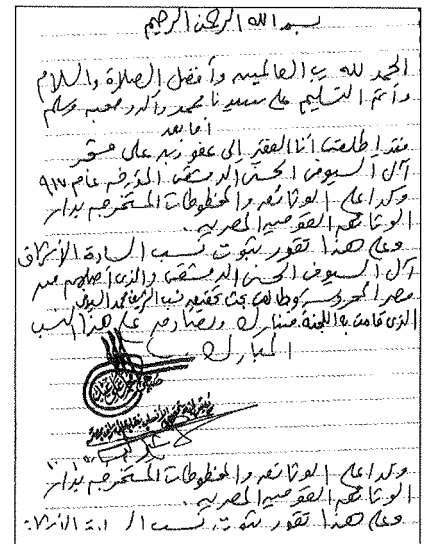 بسم الله الرحمن الرحيم
الحمد لله رب العالمين وأفضل الصلاة والسلام
وأتم التسليم على سيدنا محمد وآله وصحبه وسلم
أما بعد
فقد اطلعت أنا الفقير إلى عفو ربه على مشجر
آل السيوفي الحسني الدمشقي المؤرخه عام ٩١٧
وكذا على الوثائق والمخطوطات المستخرجه بدار
الوثائق القوميه المصريه.
وعلى هذا تقرر ثبوت نسب السادة الأشراف
آل السيوفي الحسني الدمشقي والذي أصلهم من
مصر المحروسه وطالعت بحث تحقيق نسب الشريف محمد السيوفي
الذي قامت به اللجنة فنبارك ونصادق على هذا النسب
المبارك
وكذا على الوثائق والمخطوطات المستخرجه بدار
الوثائق القوميه المصريه.
وعلى هذا تقرر ثبوت نسب